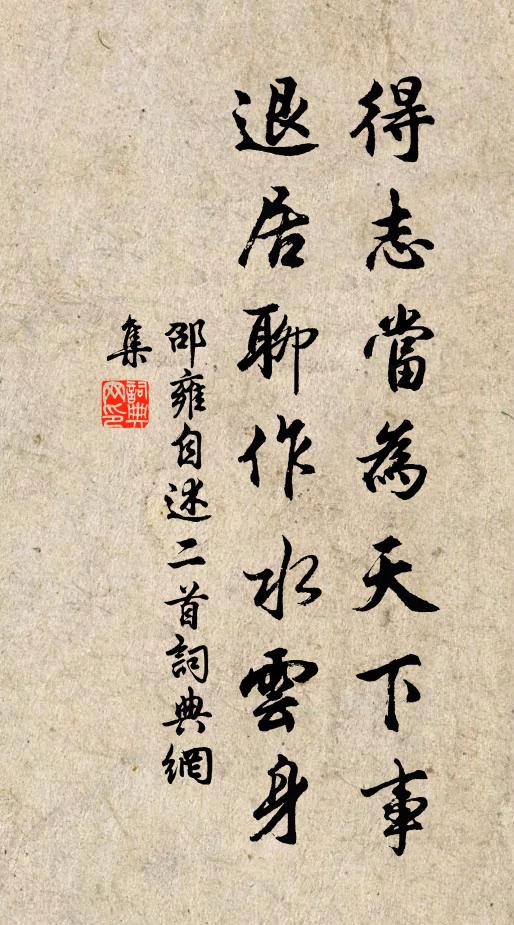 得志當為天下事
退居聊作水雲身
邵雍自述二首詞典網
集
詞典
网印